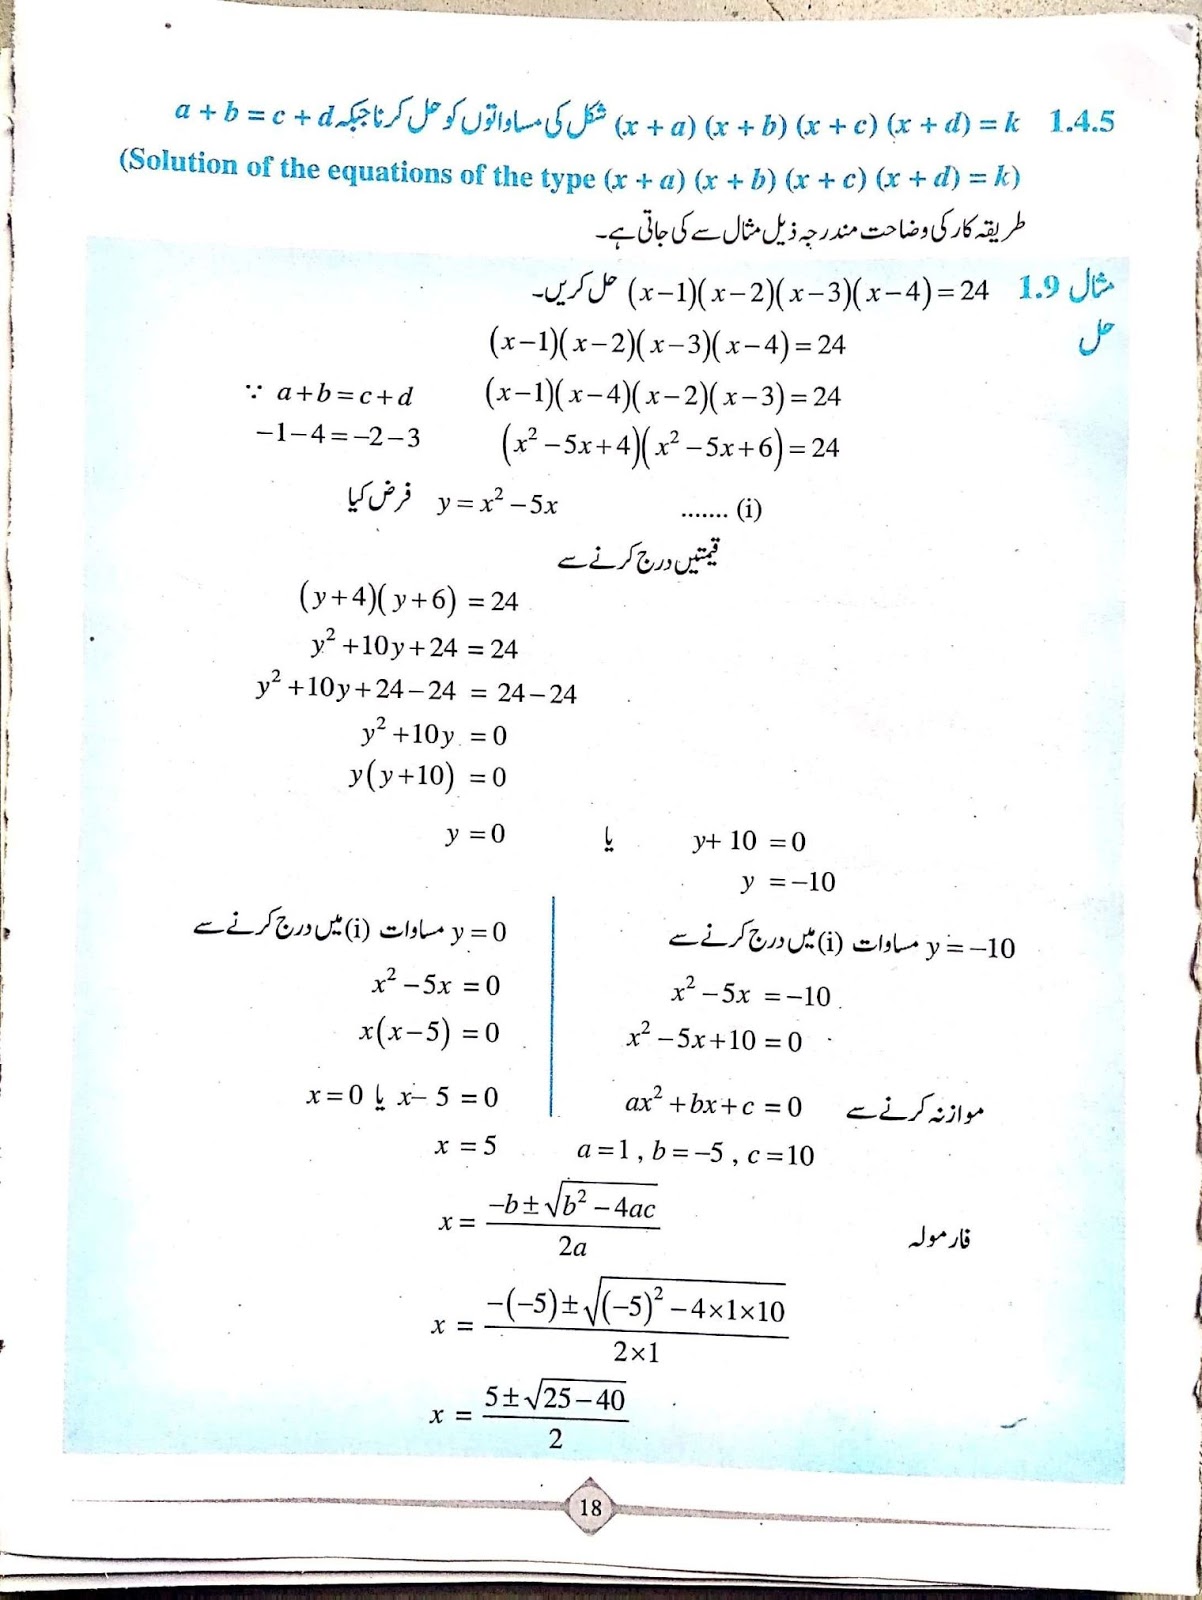 1.4.5 (x + a) (x + b) (x + c) (x + d) = k شکل کی مساواتوں کو حل کرنا جبکہ a + b = c + d
(Solution of the equations of the type (x + a) (x + b) (x + c) (x + d) = k)
طریقہ کار کی وضاحت مندرجہ ذیل مثال سے کی جاتی ہے۔
مثال 1.9 (x−1)(x−2)(x−3)(x−4)=24 حل کریں۔
حل (x−1)(x−2)(x−3)(x−4)=24
(x−1)(x−4)(x−2)(x−3)=24 ∵ a+b=c+d
(x²−5x+4)(x²−5x+6)=24 −1−4=−2−3
فرض کیا y=x²−5x ....... (i)
قیمتیں درج کرنے سے
(y+4)(y+6) =24
y²+10y+24 =24
y²+10y+24−24 = 24−24
y²+10y =0
y(y+10) =0
y =0 یا y+ 10 =0
y =−10
y=0 مساوات (i) میں درج کرنے سے
x²−5x =0
x(x−5) =0
x=0 یا x− 5 =0
x =5
y=−10 مساوات (i) میں درج کرنے سے
x²−5x =−10
x²−5x+10 =0
ax²+bx+c =0 موازنہ کرنے سے
a=1 , b=−5 , c=10
x = (−b±√(b²−4ac))/2a فارمولہ
x = (−(−5)±√((−5)²−4×1×10))/(2×1)
x = (5±√(25−40))/2
18